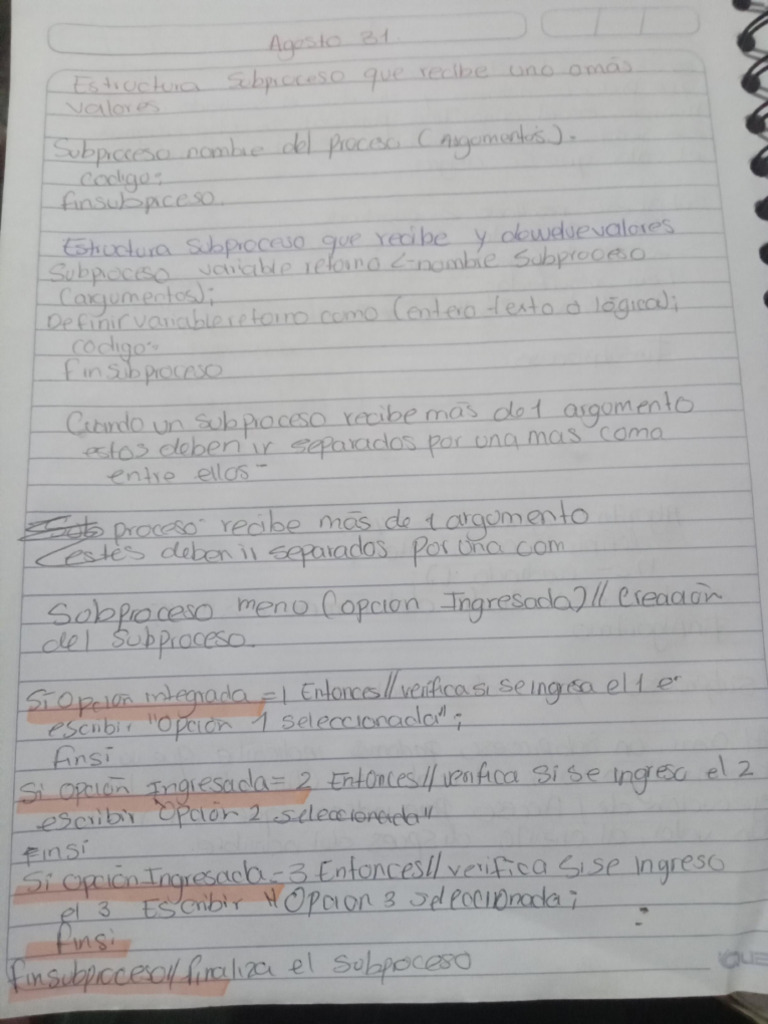 Agosto 31
Estructura Subproceso que recibe uno o más
valores
Subproceso nombre del proceso (Argomentos).
codigo:
finsubproceso.
Estructura Subproceso que recibe y devuelve valores
Subproceso variable retorno <-nombre Subproceso
(argumentos);
Definir variable retorno como (entero texto o lógica);
codigo:
finsubproceso
Cuando un subproceso recibe más de 1 argomento
estos deben ir separados por una mas coma
entre ellos-
proceso recibe más de 1 argomento
(estes deben ir separados por una com
Sobproceso meno (opcion Ingresada) // Creación
del Subproceso.
Si Opcion integrada = 1 Entonces // verifica si se ingresa el 1 e
escribir "Opción 1 seleccionada";
finsi
Si Opción Ingresada = 2 Entonces // verifica si se ingreso el 2
escribir "Opción 2 seleccionada"
Finsi
Si Opción Ingresada = 3 Entonces // verifica si se Ingreso
el 3 Escribir "Opcion 3 seleccionada;
finsi
finsubproceso // finaliza el Subproceso